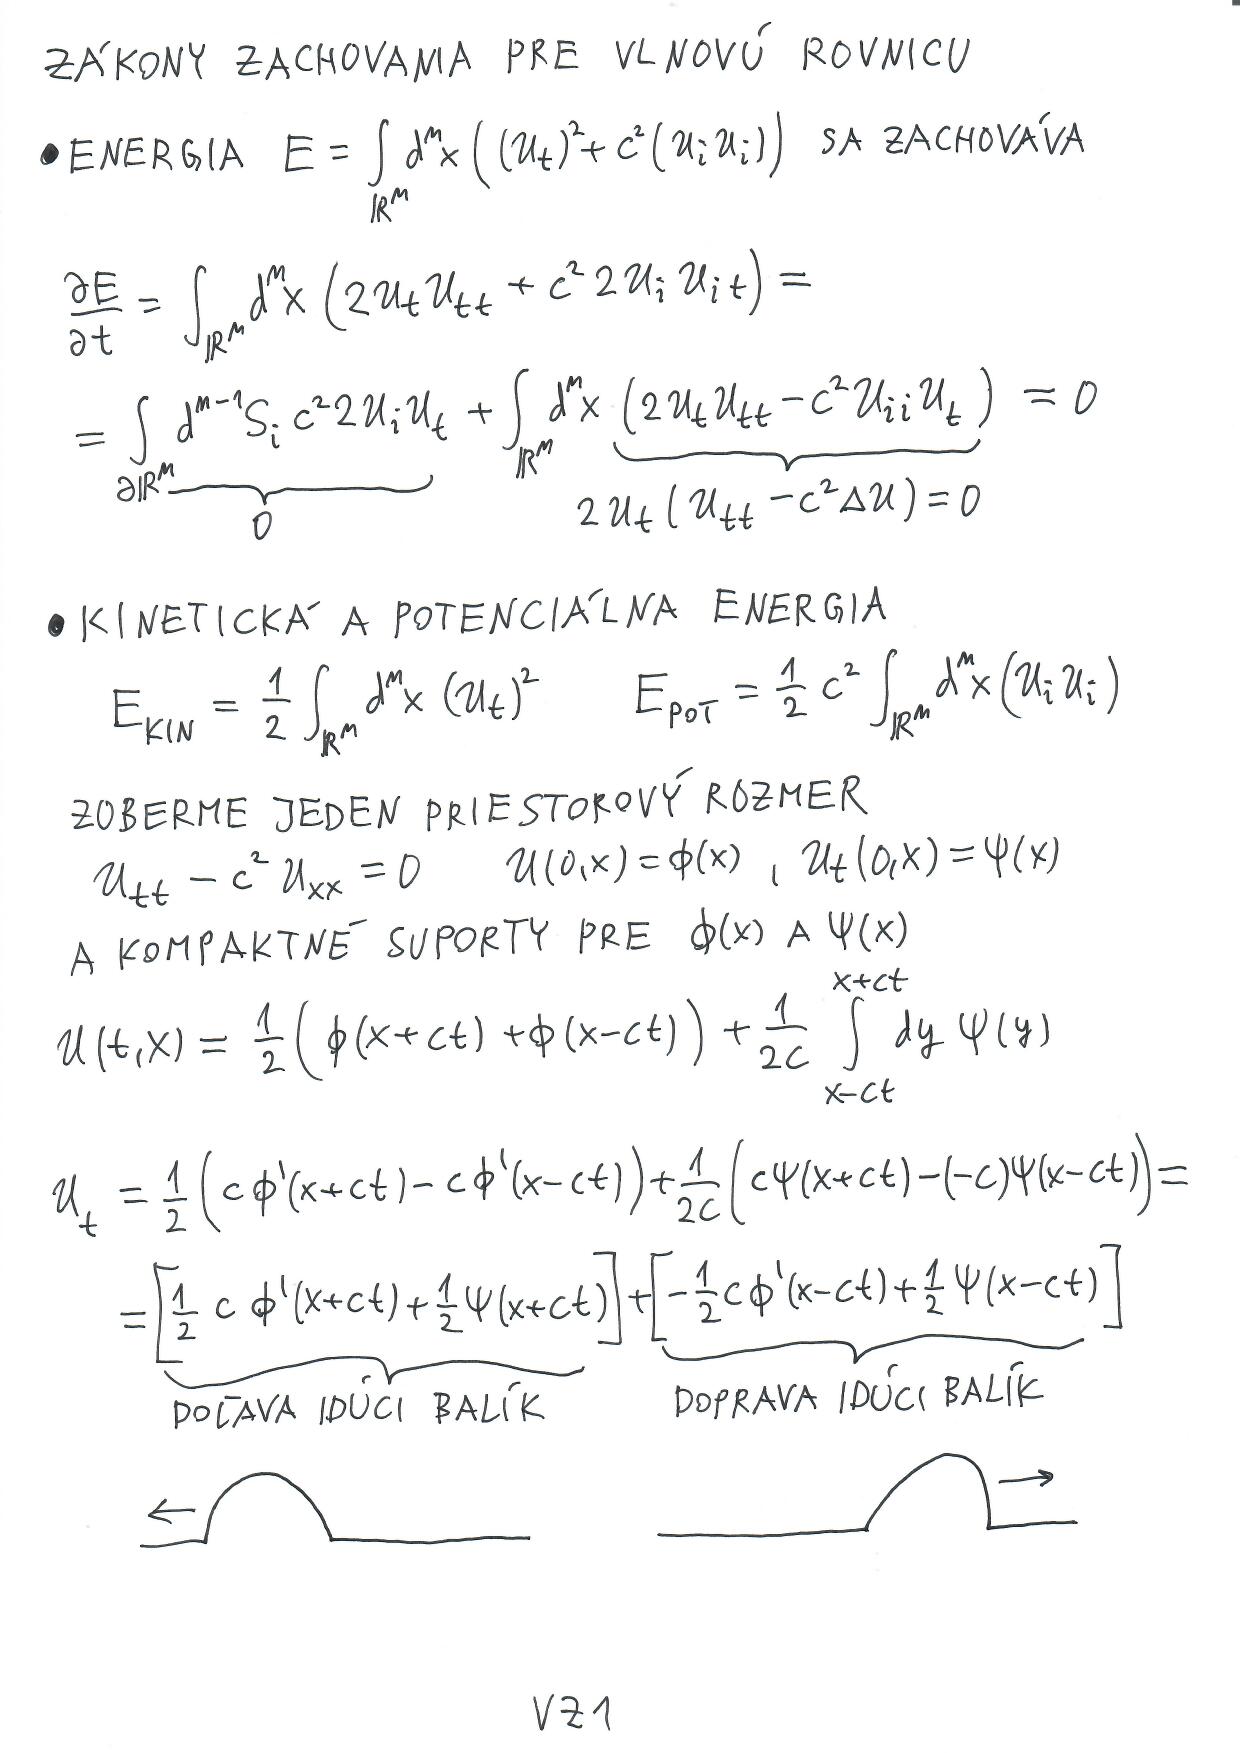 ZÁKONY ZACHOVANIA PRE VLNOVÚ ROVNICU
• ENERGIA E = ∫_{ℝ^n} d^n x ((u_t)² + c²(u_i u_i)) SA ZACHOVÁVA
∂E/∂t = ∫_{ℝ^n} d^n x (2u_t u_tt + c² 2u_i u_it) =
= ∫_{∂ℝ^n} d^{n-1}S_i c² 2u_i u_t + ∫_{ℝ^n} d^n x (2u_t u_tt − c² u_ii u_t) = 0
0 2u_t (u_tt − c²Δu) = 0
• KINETICKÁ A POTENCIÁLNA ENERGIA
E_KIN = 1/2 ∫_{ℝ^n} d^n x (u_t)² E_POT = 1/2 c² ∫_{ℝ^n} d^n x (u_i u_i)
ZOBERME JEDEN PRIESTOROVÝ ROZMER
u_tt − c² u_xx = 0 u(0,x) = ϕ(x) , u_t(0,x) = ψ(x)
A KOMPAKTNÉ SUPORTY PRE ϕ(x) A ψ(x)
u(t,x) = 1/2 (ϕ(x+ct) + ϕ(x−ct)) + 1/2c ∫_{x−ct}^{x+ct} dy ψ(y)
u_t = 1/2 (cϕ'(x+ct) − cϕ'(x−ct)) + 1/2c (cψ(x+ct) − (−c)ψ(x−ct)) =
= [1/2 c ϕ'(x+ct) + 1/2 ψ(x+ct)] + [−1/2 cϕ'(x−ct) + 1/2 ψ(x−ct)]
DOĽAVA IDÚCI BALÍK DOPRAVA IDÚCI BALÍK
VZ1